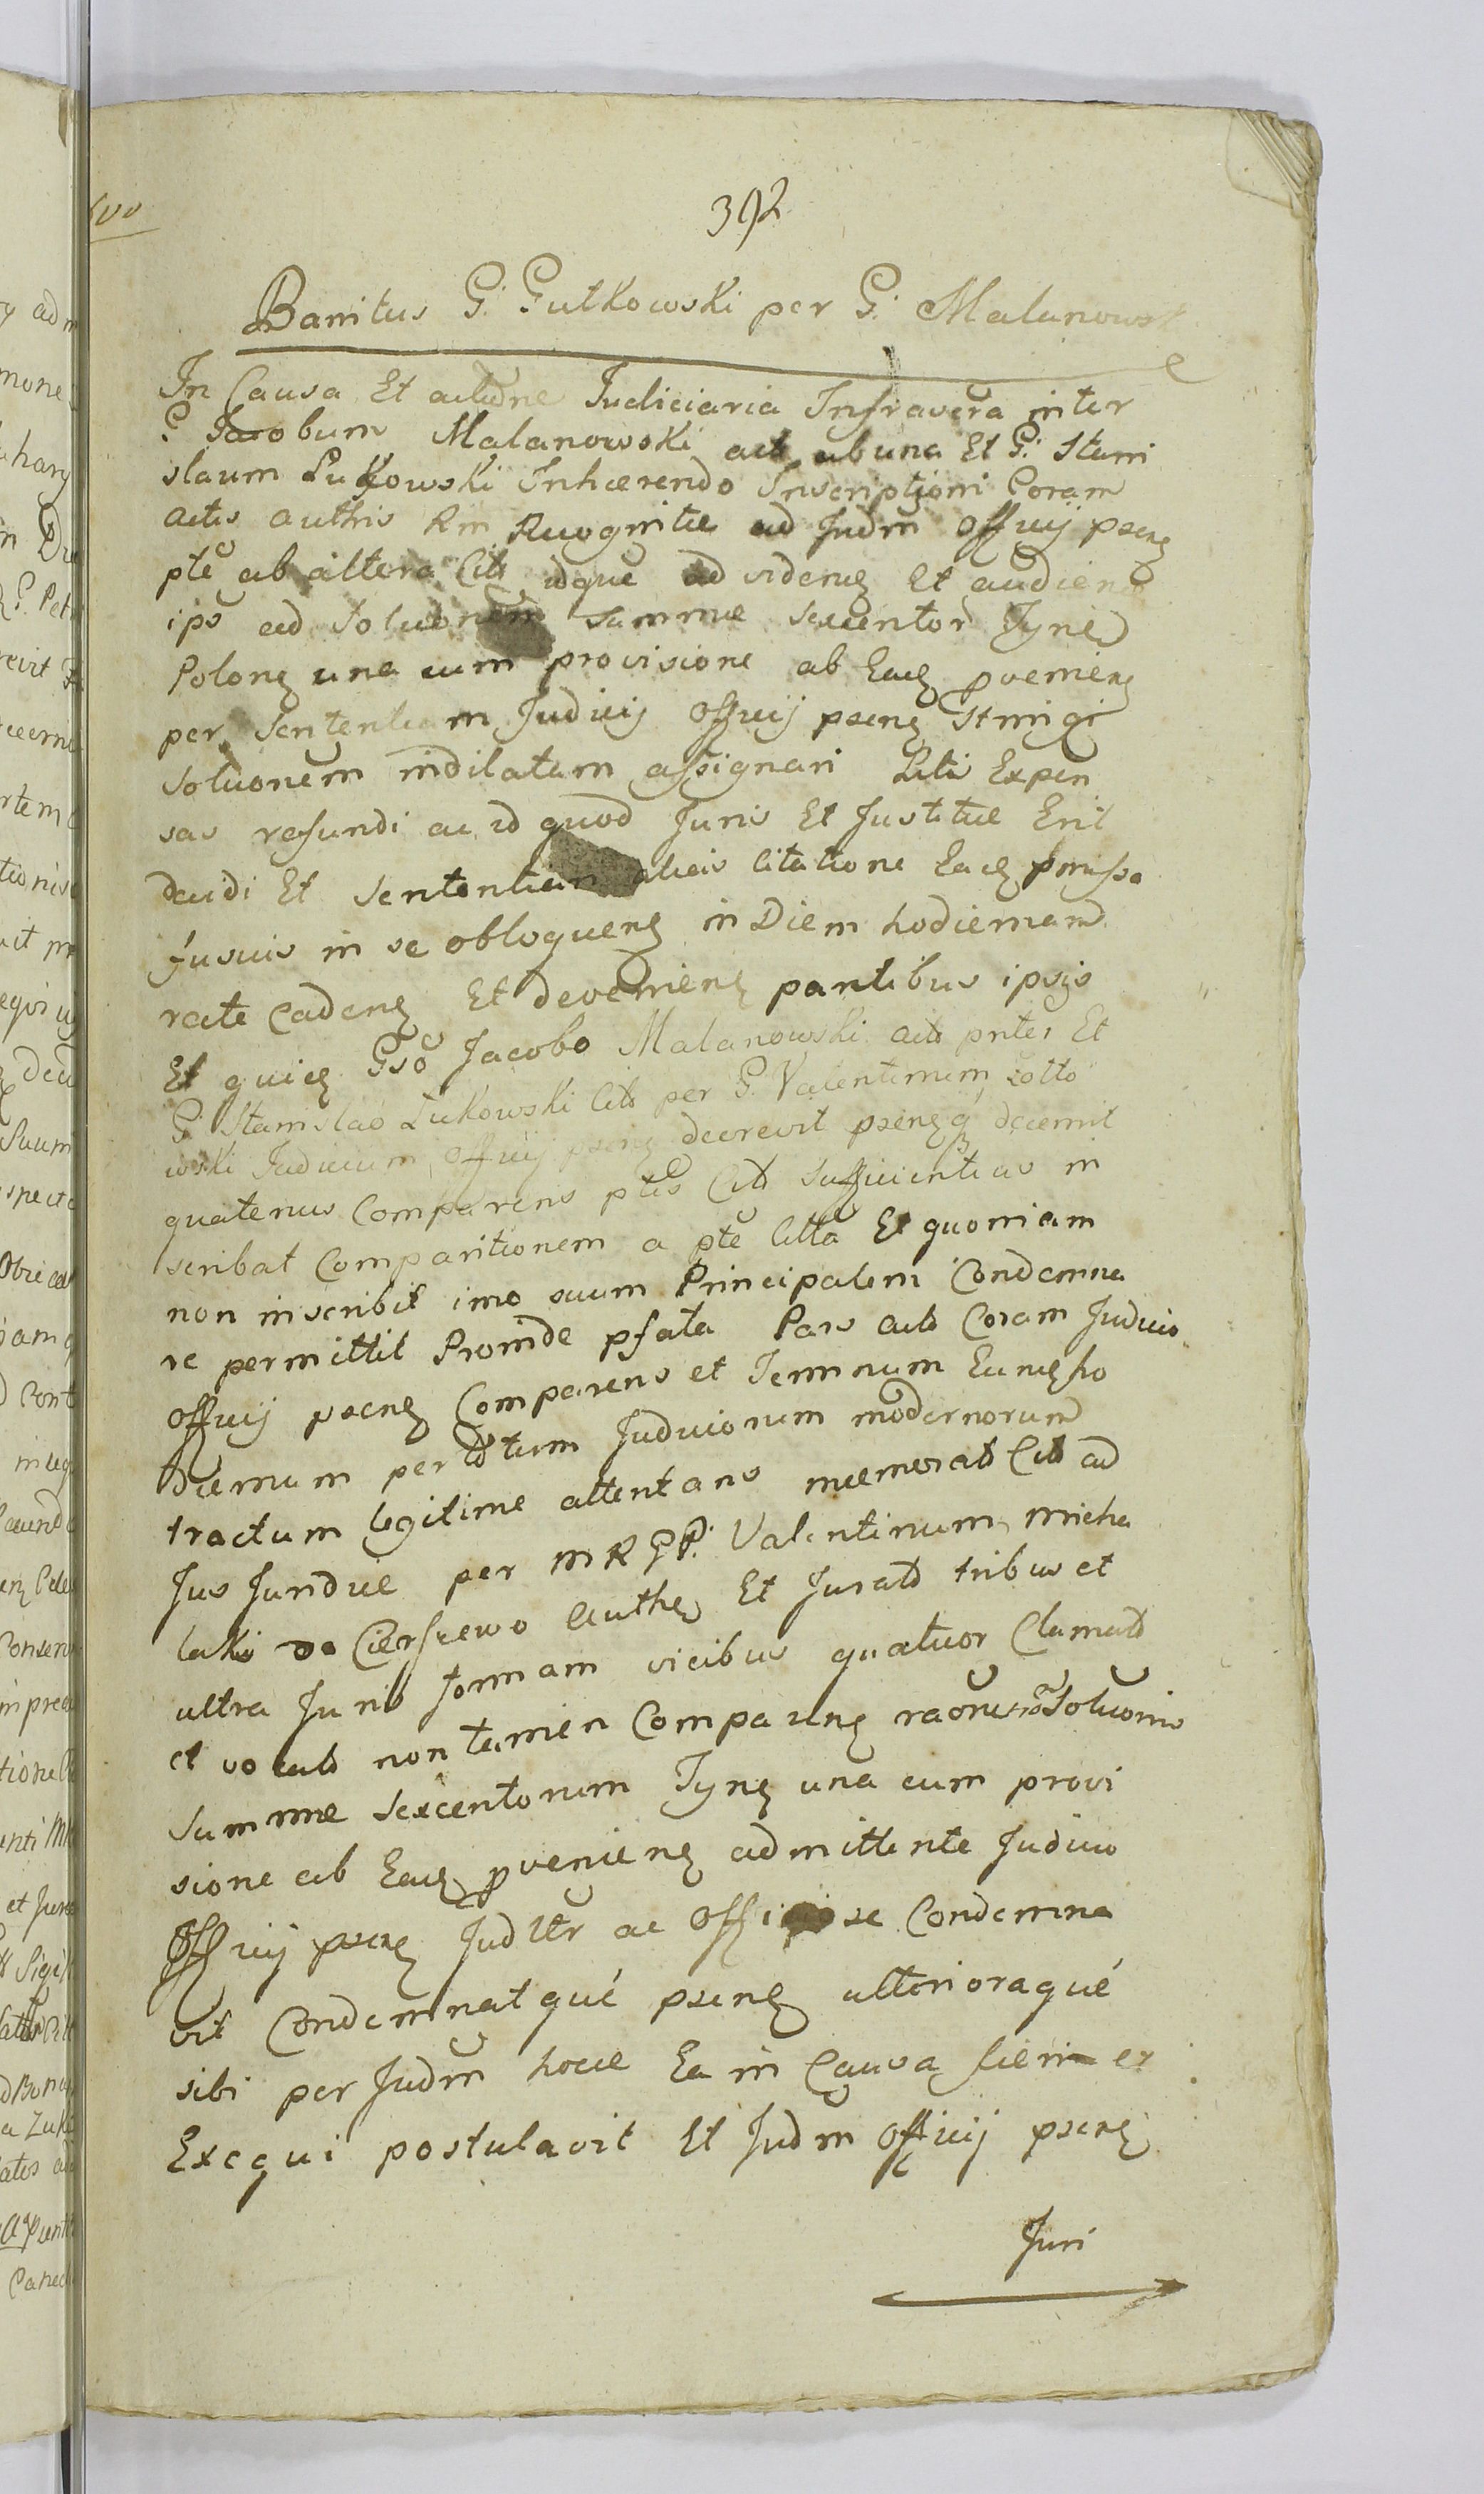 392
Banitus G: Gutkowski per G: Malanowsk
In Causa Et actione Judiciaria Infrascra inter
G Jacobum Malanowski act ab una Et G: Stani
slaum Lukowski Inhærendo Inscriptioni Coram
actis authis Rm Recognitæ ad Judm Officij psenz
pte ab altera Citt idque ad videnz Et audienz
ips ad Solutionem Summæ sexentor Tyned
Polonz una cum provisione ab Eadz pvenienz
per Sententiam Judicij Officij psenz Stringi
Solutionem indilatam assignari Litis Expen
sas refundi ac id quod Juris Et Justitiæ Erit
decidi Et Sententiari citatione Eadz pmissa
fusius in se obloquenz in Diem hodiernam
recte Cadenz Et devenienz partibus ipsis
Et quidz Gso Jacobo Malanowski act pnter Et
G: Stanislao Lukowski Citt per G. Valentinum Zotto
wski Judicium Officij psenz decrevit psenzq decernit
quatenus Comparens ptis Citt Sufficientius in
scribat Comparitionem a pte Citta Et quoniam
non inscribit imo suum Principalem Condemna
re permittit Proinde pfata Pars act Coram Judicio
Officij psenz Comparens et Terminum Eundz ho
diernum per totum Judiciorum modernorum
tractum legitime attentans memorat Citt ad
Jus Juridice per MRGP: Valentinum Micha
laki do Cierszewo Authz Et Jurat tribus et
ultra Juris formam vicibus quatuor Clamat
et vocat non tamen Comparenz raone non Solutionis
Summæ Sexcentorum Tynz una cum provi
sione ab Eadz pvenienz admittente Judicio
Officij psenz Juditr ac Officiose Condemna
vit Condemnatqué psenz ulterioraqué
sibi per Judm hocce Ea in Causa fieri et
Exequi postulavit Et Judm Officij psenz
Juri